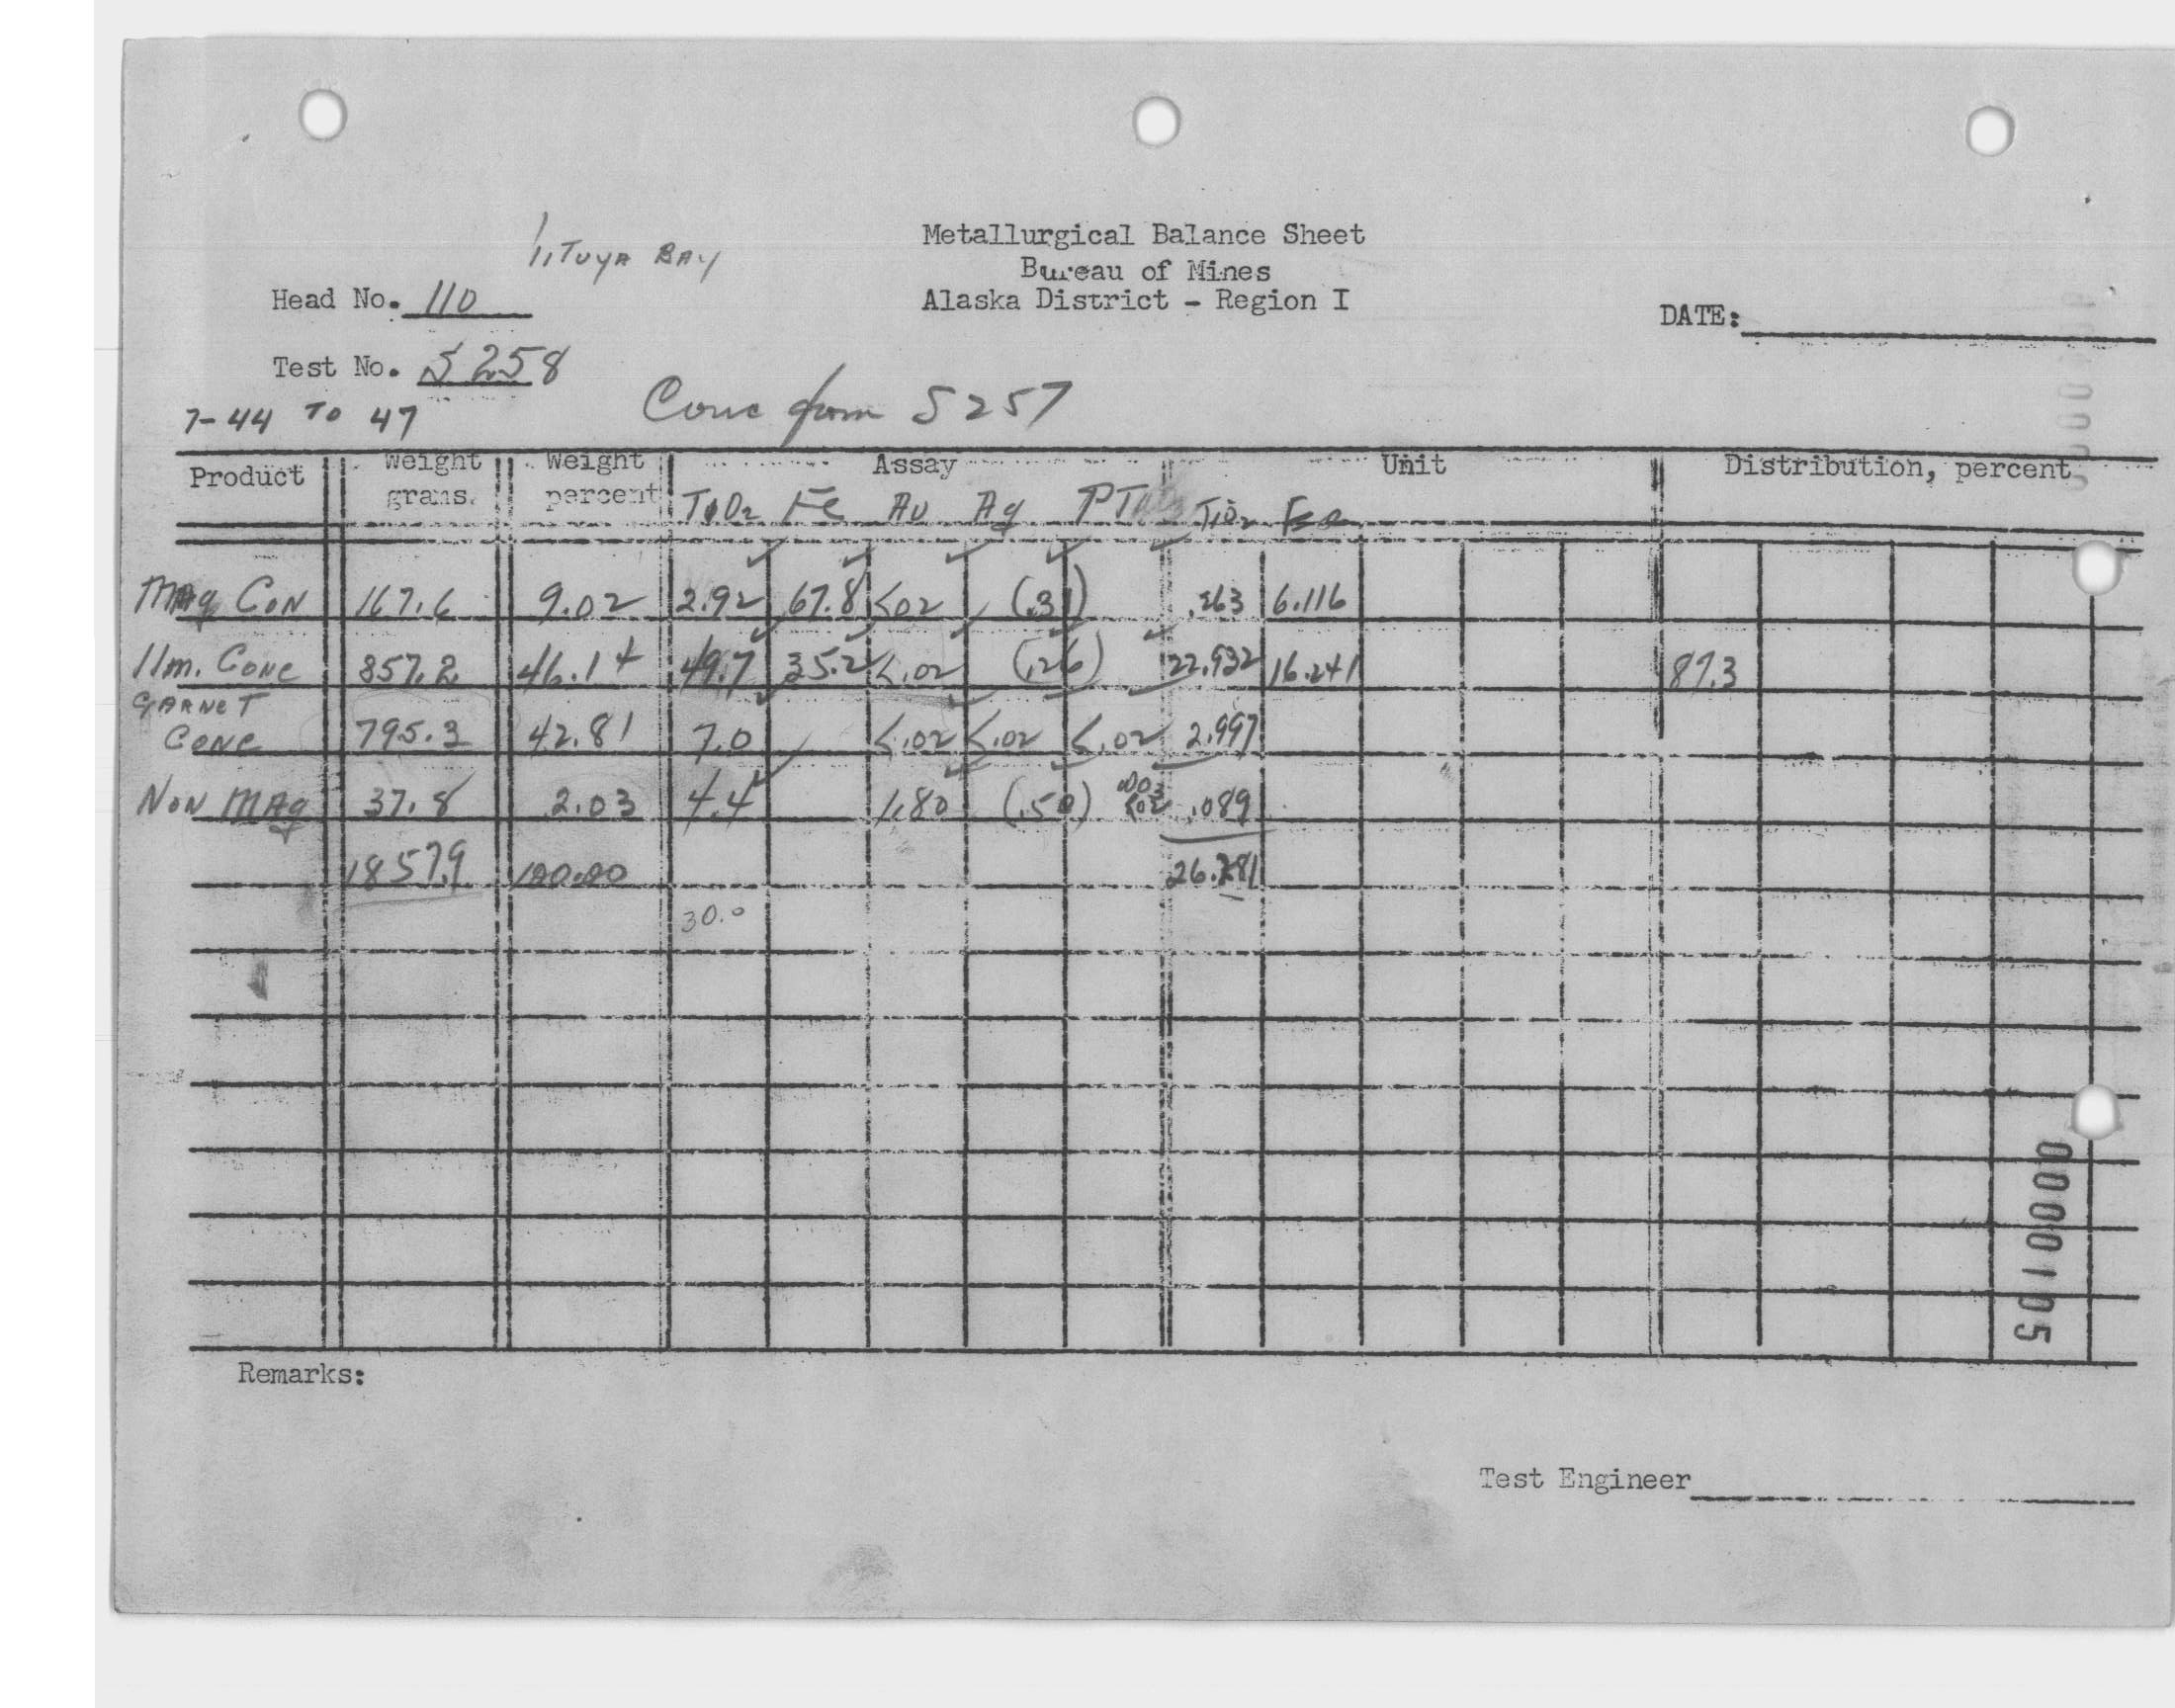 Metallurgical Balance Sheet
LITUYA BAY
Bureau of Mines
Head No. 110
Alaska District - Region I
DATE:
Test No. S 258
7-44 TO 47
Conc from S 257
Product Weight grams. Weight percent Assay Unit Distribution, percent
TiO2 Fe Au Ag PT TiO2 Fe
MAg CON 167.6 9.02 2.92 67.8 <.02 (.31) .263 6.116
Ilm. Conc 857.2 46.14 49.7 35.2 <.02 (.26) 22.932 16.241 87.3
GARNET
CONC 795.3 42.81 7.0 <.02 <.02 <.02 2.997
NON MAg 37.8 2.03 4.4 1.80 (.50) <.02 .089
1857.9 100.00 26.281
30.0
0000105
Remarks:
Test Engineer